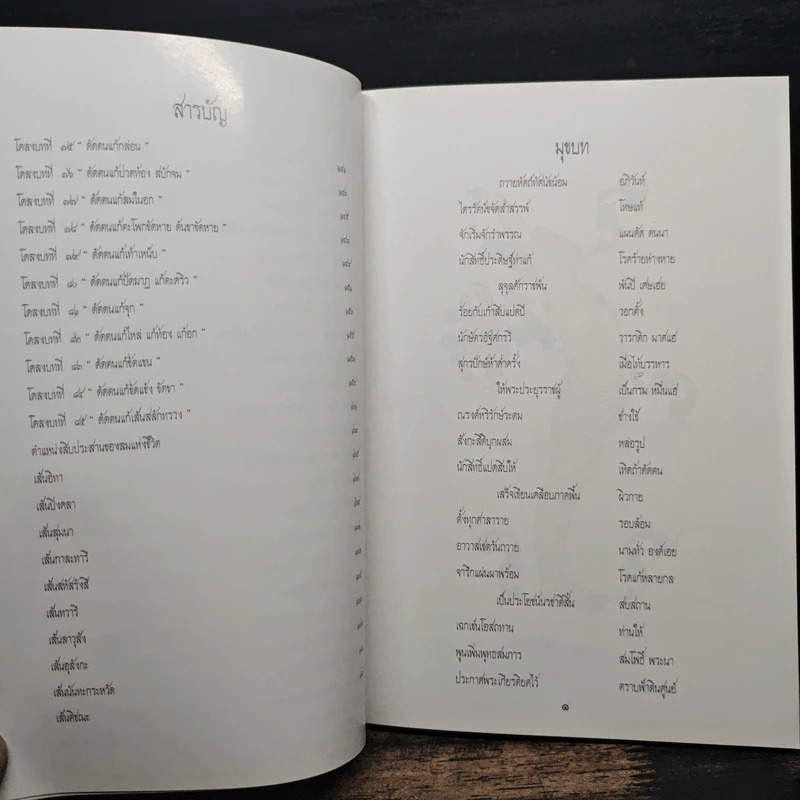 สารบัญ
โคลงบทที่ ๗๕ " ดัดตนแก้กล่อน "
โคลงบทที่ ๗๖ " ดัดตนแก้ปวดท้อง สบักจม "
โคลงบทที่ ๗๗ " ดัดตนแก้ลมในอก "
โคลงบทที่ ๗๘ " ดัดตนแก้ตะโพกขัดหาย ต้นขาขัดหาย "
โคลงบทที่ ๗๙ " ดัดตนแก้เท้าเหน็บ "
โคลงบทที่ ๘๐ " ดัดตนแก้ปัตฆาฏ แก้ตะคริว "
โคลงบทที่ ๘๑ " ดัดตนแก้จุก "
โคลงบทที่ ๘๒ " ดัดตนแก้ไหล่ แก้ท้อง แก้อก "
โคลงบทที่ ๘๓ " ดัดตนแก้ขัดแขน "
โคลงบทที่ ๘๔ " ดัดตนแก้ขัดแข้ง ขัดขา "
โคลงบทที่ ๘๕ " ดัดตนแก้เส้นสลักทรวง "
ตำแหน่งสิบประสานของลมแห่งชีวิต
เส้นอิทา
เส้นปิงคลา
เส้นสุมนา
เส้นกาละทารี
เส้นสหัสรังสี
เส้นทวารี
เส้นลาวุสัง
เส้นอุลังกะ
เส้นนันทะกระหวัด
เส้นคิชฌะ
มุขบท
ถวายหัตถ์ทัศนัขน้อม อภิวันท์
ไตรรัตน์ขจัดสำสรรพ์ โทษแท้
จักเริ่มจักรำพรรณ แผนดัด ตนนา
นักสิทธิ์ประดิษฐ์ท่าแก้ โรคร้ายห่างหาย
สุจุลศักราชพ้น พันปี เศษเฮย
ร้อยกับเก้าสิบแปดปี วอกตั้ง
นักษัตรอัฐศกรวี วารกติก มาศแฮ่
สุกรปักษ์ห้าค่ำครั้ง เมื่อไท้บรรหาร
ให้พระประยุรราชผู้ เป็นกรม หมื่นแฮ่
ณรงค์หริรักษ์ระดม ช่างใช้
สังกะสีดิบุกผสม หล่อรูป
นักสิทธิ์แปดสิบให้ เทิดถ้าดัดตน
เสร็จเขียนเคลือบภาคพื้น ผิวกาย
ตั้งทุกศาลาราย รอบล้อม
อาวาสเชตวันถวาย นามทั่ว องค์เอย
จาริกแผ่นผาพร้อม โรคแก้หลายกล
เป็นประโยชน์นรชาติสิ้น สบสถาน
เฉกเช่นโอสถทาน ท่านให้
พูนเพิ่มพุทธสมภาร สมโพธิ์ พระนา
ประกาศพระเกียรติยศไว้ ตราบฟ้าดินศูนย์
๑